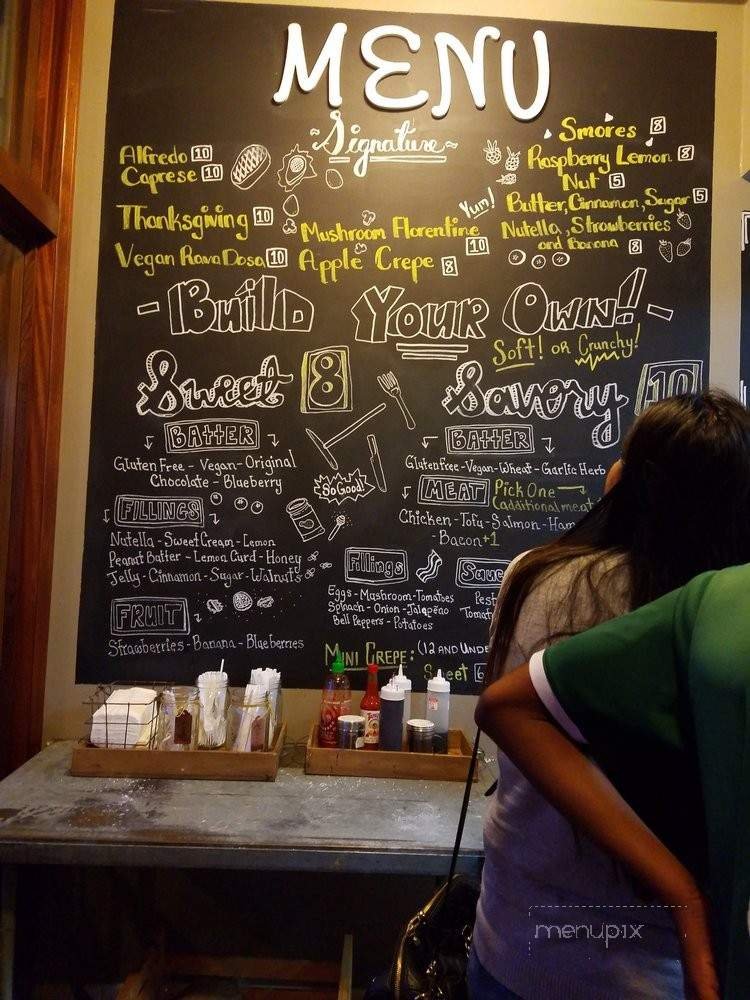 MENU
~Signature~
Alfredo 10
Caprese 10
Thanksgiving 10
Vegan Rava Dosa 10
Mushroom Florentine 10
Apple Crepe 8
Yum!
Smores 8
Raspberry Lemon 8
Nut 5
Butter, Cinnamon, Sugar 5
Nutella, Strawberries
and Banana 8
-Build Your Own!-
Soft! or Crunchy!
Sweet 8
Batter
Gluten Free - Vegan - Original
Chocolate - Blueberry
Fillings
Nutella - Sweet Cream - Lemon
Peanut Batter - Lemon Curd - Honey
Jelly - Cinnamon - Sugar - Walnuts
Fruit
Strawberries - Banana - Blueberries
So Good!
Savory 10
Batter
Gluten Free - Vegan - Wheat - Garlic Herb
Meat Pick One
Chicken - Tofu - Salmon - Ham
- Bacon +1
Fillings
Eggs - Mushroom - Tomatoes
Spinach - Onion - Jalapeño
Bell Peppers - Potatoes
Mini Crepe: (12 and Unde
Sweet 6
menupix